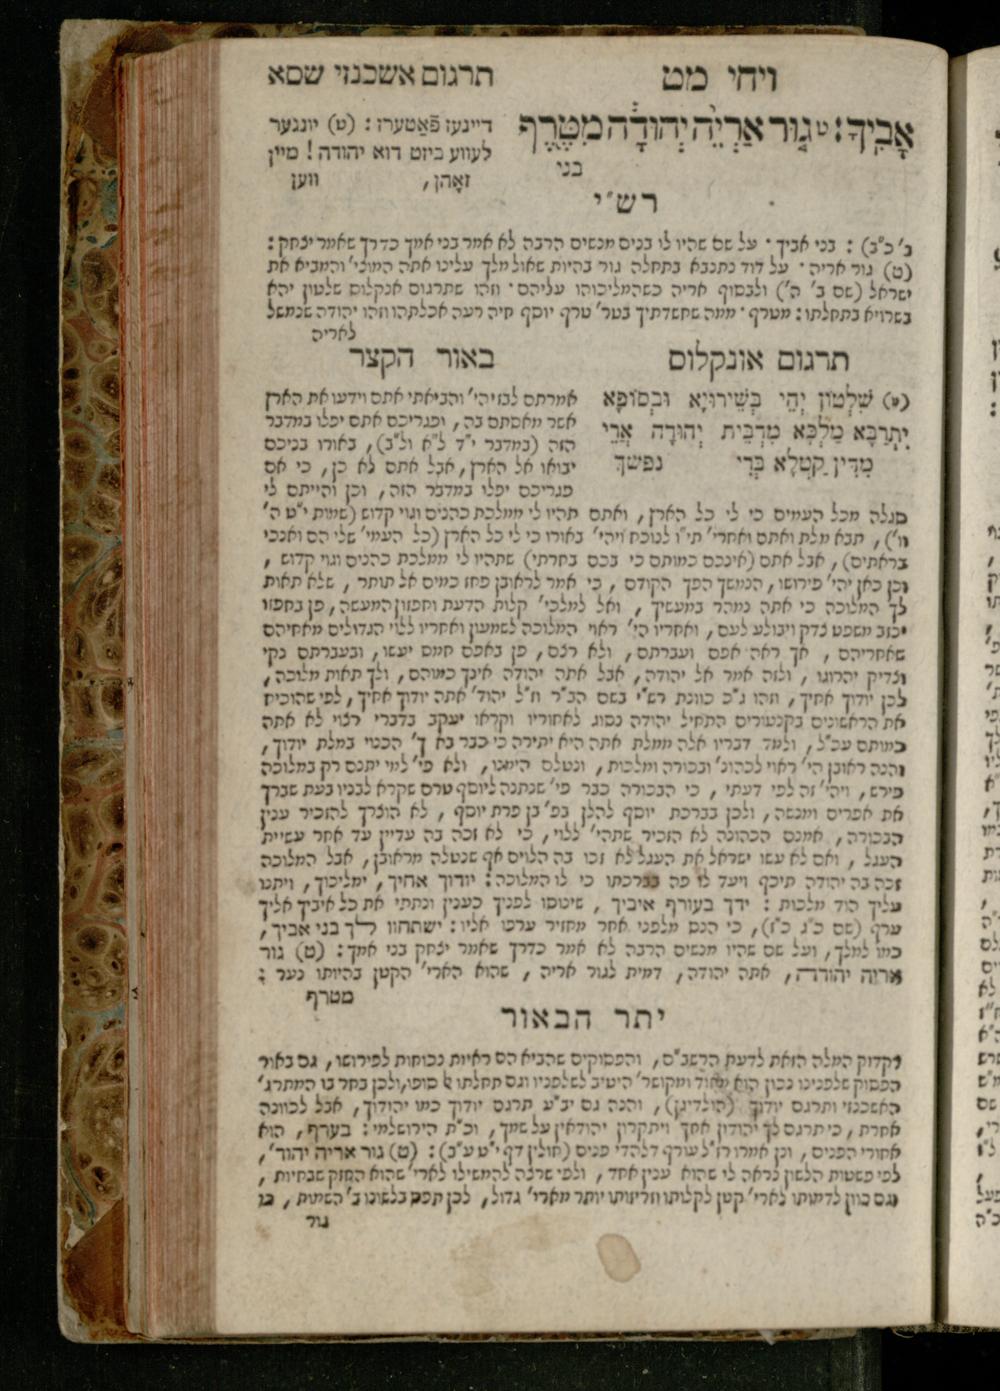 ויחי מט
תרגום אשכנזי שסא
אָבִֽיךָ׃ ט גּ֤וּר אַרְיֵה֙ יְהוּדָ֔ה מִטֶּ֖רֶף
בני
דיינעז פֿאַטערז : (ט) יונגער
לעווע ביזט דוא יהודה ! מיין
זאָהן, ווען
רש״י
ב' כ"ב) : בני אביך · על שם שהיו לו בנים מנשים הרבה לא אמר בני אמך כדרך שאמר יצחק :
(ט) גור אריה · על דוד נתנבא בתחלה גור בהיות שאול מלך עלינו אתה המוציא והמביא את
ישראל (שם ב' ה') ולבסוף אריה כשהמליכוהו עליהם · וזהו שתרגום אנקלוס שלטון יהא
בשרויא בתחלתו : מטרף · ממה שחשדתיך בטר' טרף יוסף חיה רעה אכלתהו וזהו יהודה שנמשל
לאריה
תרגום אונקלוס
(ט) שִׁלְטוֹן יְהֵי בְּשֵׁירוּיָא וּבְסוֹפָא
יִתְרַבָּא מַלְכָּא מִדְבֵּית יְהוּדָה אֲרֵי
מִדִּין קְטָלָא בְּרִי נפשך
באור הקצר
אמרתם לבז יהי' והביאתי אתם וידעו את הארץ
אשר מאסתם בה, ופגריכם אתם יפלו במדבר
הזה (במדבר י"ד ל"א ול"ב), באורו בניכם
יבואו אל הארץ, אבל אתם לא כן, כי אם
פגריכם יפלו במדבר הזה, וכן והייתם לי
סגלה מכל העמים כי לי כל הארץ, ואתם תהיו לי ממלכת כהנים וגוי קדוש (שמות י"ט ה'
ו'), תבא מלת ואתם ואחרי' תי"ו לנוכח ויהי' באורו כי לי כל הארץ (כל העמי' שלי הם ואנכי
בראתים), אבל אתם (אינכם כמותם כי בכם בחרתי) שתהיו לי ממלכת כהנים וגוי קדוש,
וכן כאן יהי' פירושו, הנמשך הפך הקודם, כי אמר לראובן פחז כמים אל תותר, שלא תאות
לך המלוכה כי אתה נמהר במעשיך, ואל למלכי' קלות הדעת וחפזון המעשה, פן בחפזו
יכזב משפט צדק ויבולע לעם, ואחריו הי' ראוי המלוכה לשמעון ואחריו ללוי הגדולים מאחיהם
שאחריהם, אך ראה אפם ועברתם, ולא רצם, פן באפם חמס יעשו, ובעברתם נקי
וצדיק יהרוגו, ולזה אמר אל יהודה, אבל אתה יהודה אינך כמוהם, ולך תאות מלוכה,
לכן יודוך אחיך, וזהו ג"כ כוונת רש"י בשם הב"ר וז"ל יהוד' אתה יודוך אחיך, לפי שהוכיח
את הראשונים בקנטורים התחיל יהודה נסוג לאחוריו וקראו יעקב בדברי רצוי לא אתה
כמותם עכ"ל, ולמד דבריו אלה ממלת אתה היא יתירה כי כבר בא ך' הכנוי במלת יודוך,
והנה ראובן הי' ראוי לכהונ' ובכורה ומלכות, ונטלם הימנו, ולא פי' למי יתנם רק במלוכה
פירש, ויהי' זה לפי דעתי, כי הבכורה כבר פי' שנתנה ליוסף טרם שקרא לבניו בעת שברך
את אפרים ומנשה, ולכן בברכת יוסף להלן בפ' בן פרת יוסף, לא הוצרך להזכיר ענין
הבכורה, אמנם הכהונה לא הזכיר שתהי' ללוי, כי לא זכה בה עדיין עד אחר עשיית
העגל, ואם לא עשו ישראל את העגל לא זכו בה הלוים אף שנטלה מראובן, אבל המלוכה
זכה בה יהודה תיכף ויעד לו פה בברכתו כי לו המלוכה : יודוך אחיך, ימליכוך, ויתנו
עליך הוד מלכות : ידך בעורף איביך, שינוסו לפניך כענין ונתתי את כל איביך אליך
ערף (שם כ"ג כ"ז), כי הנס מלפני אחר מחזיר ערפו אליו : ישתחוו לך בני אביך,
כמו למלך, ועל שם שהיו מנשים הרבה לא אמר כדרך שאמר יצחק בני אמך : (ט) גור
אריה יהודה, אתה יהודה, דמית לגור אריה, שהוא הארי' הקטן בהיותו נער :
מטרף
יתר הבאור
בקדוק המלה הזאת לדעת הרשב"ם, והפסוקים שהביא הם ראיות נכוחות לפירושו, גם באור
הפסוק שלפנינו נכון הוא מאוד ומקושר' היטיב לשלפניו וגם תחלתו ל סופו, ולכן בחר בו המתרג'
האשכנזי ותרגם יודוך (הולדיגן), והנה גם יב"ע תרגם יודוך כמו יהודוך, אבל לכוונה
אחרת, כי תרגם לך יהודון אחך ויתקרון יהודאין על שמך, וכ"ת הירושלמי : בערף, הוא
אחורי הפנים, וכן אמרו רז"ל עורף דלהדי פנים (חולין דף י"ט ע"ב) : (ט) גור אריה יהוד',
לפי פשטות הלשון נראה לי שהוא ענין אחד, ולפי שרצה להמשילו לארי' שהוא החזק שבחיות,
וגם כוון לדמותו לארי' קטן לקלותו וזריזותו יותר מארי' גדול, לכן תפס בלשונו ב' השמות, בו
גור